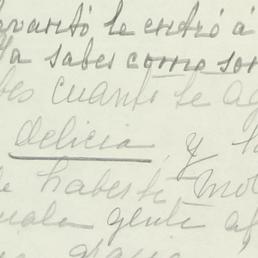 levantó le entró á
Ya sabes como son
bes cuanto te ag
delicia, y t
haberte mol
mala gente af